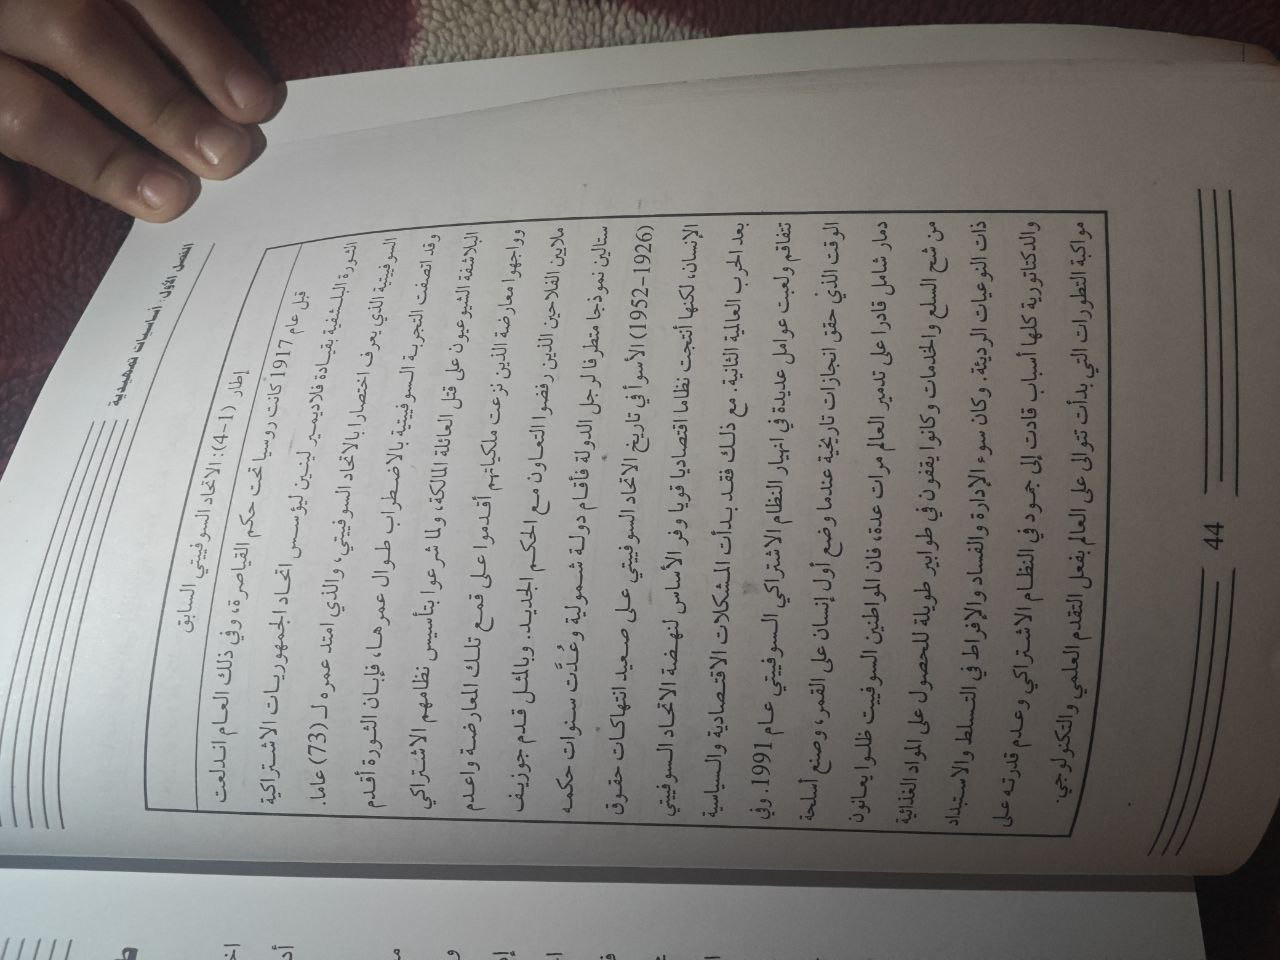 الفصل الأول: أساسيات تمهيدية
إطار (1-4): الاتحاد السوفييتي السابق
قبل عام 1917 كانت روسيا تحت حكم القياصرة، وفي ذلك العام اندلعت
الثورة البلشفية بقيادة فلاديمير لينين ليؤسس اتحاد الجمهوريات الاشتراكية
السوفييتية الذي يعرف اختصارا بالاتحاد السوفييتي، والذي امتد عمره لـ (73) عاما.
وقد اتصفت التجربة السوفييتية بالاضطراب طوال عمرها، فإبان الثورة أقدم
البلاشفة الشيوعيون على قتل العائلة المالكة، ولما شرعوا بتأسيس نظامهم الاشتراكي
وواجهوا معارضة الذين نزعت ملكياتهم أقدموا على قمع تلك المعارضة واعدم
ملايين الفلاحين الذين رفضوا التعاون مع الحكم الجديد. وبالمثل قدم جوزيف
ستالين نموذجا متطرفا لرجل الدولة فأقام دولة شمولية وعُدَّت سنوات حكمه
(1926-1952) الأسوأ في تاريخ الاتحاد السوفييتي على صعيد انتهاكات حقوق
الإنسان، لكنها أنتجت نظاما اقتصاديا قويا وفر الأساس لنهضة الاتحاد السوفييتي
بعد الحرب العالمية الثانية. مع ذلك فقد بدأت المشكلات الاقتصادية والسياسية
تتفاقم ولعبت عوامل عديدة في انهيار النظام الاشتراكي السوفييتي عام 1991. وفي
الوقت الذي حقق انجازات تاريخية عندما وضع أول إنسان على القمر، وصنع أسلحة
دمار شامل قادرا على تدمير العالم مرات عدة، فان المواطنين السوفييت ظلوا يعانون
من شح السلع والخدمات وكانوا يقفون في طوابير طويلة للحصول على المواد الغذائية
ذات النوعيات الرديئة. وكان سوء الإدارة والفساد والإفراط في التسلط والاستبداد
والدكتاتورية كلها أسباب قادت إلى جمود في النظام الاشتراكي وعدم قدرته على
مواكبة التطورات التي بدأت تتوالى على العالم بفعل التقدم العلمي والتكنولوجي.
44